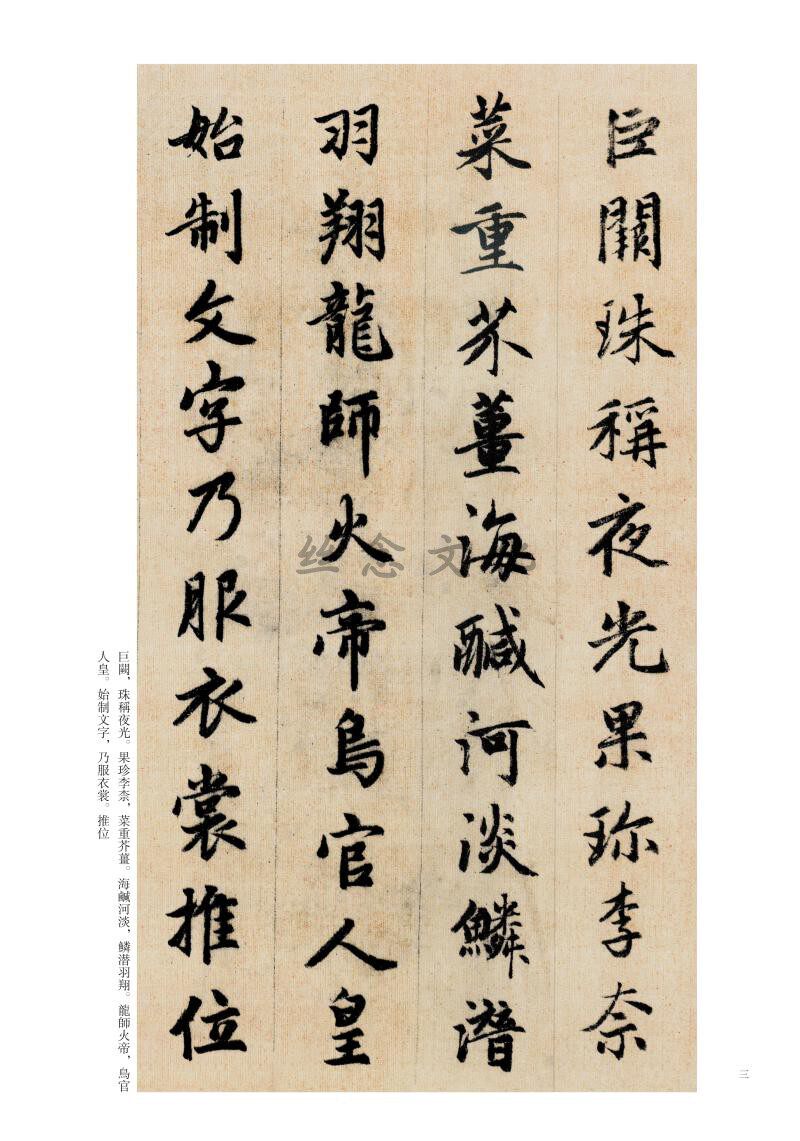 巨闕珠稱夜光果珎李柰
菜重芥薑海鹹河淡鱗潛
羽翔龍師火帝鳥官人皇
始制文字乃服衣裳推位
巨闕，珠稱夜光。果珍李柰，菜重芥薑。海鹹河淡，鱗潛羽翔。龍師火帝，鳥官
人皇。始制文字，乃服衣裳。推位
三
丝念文